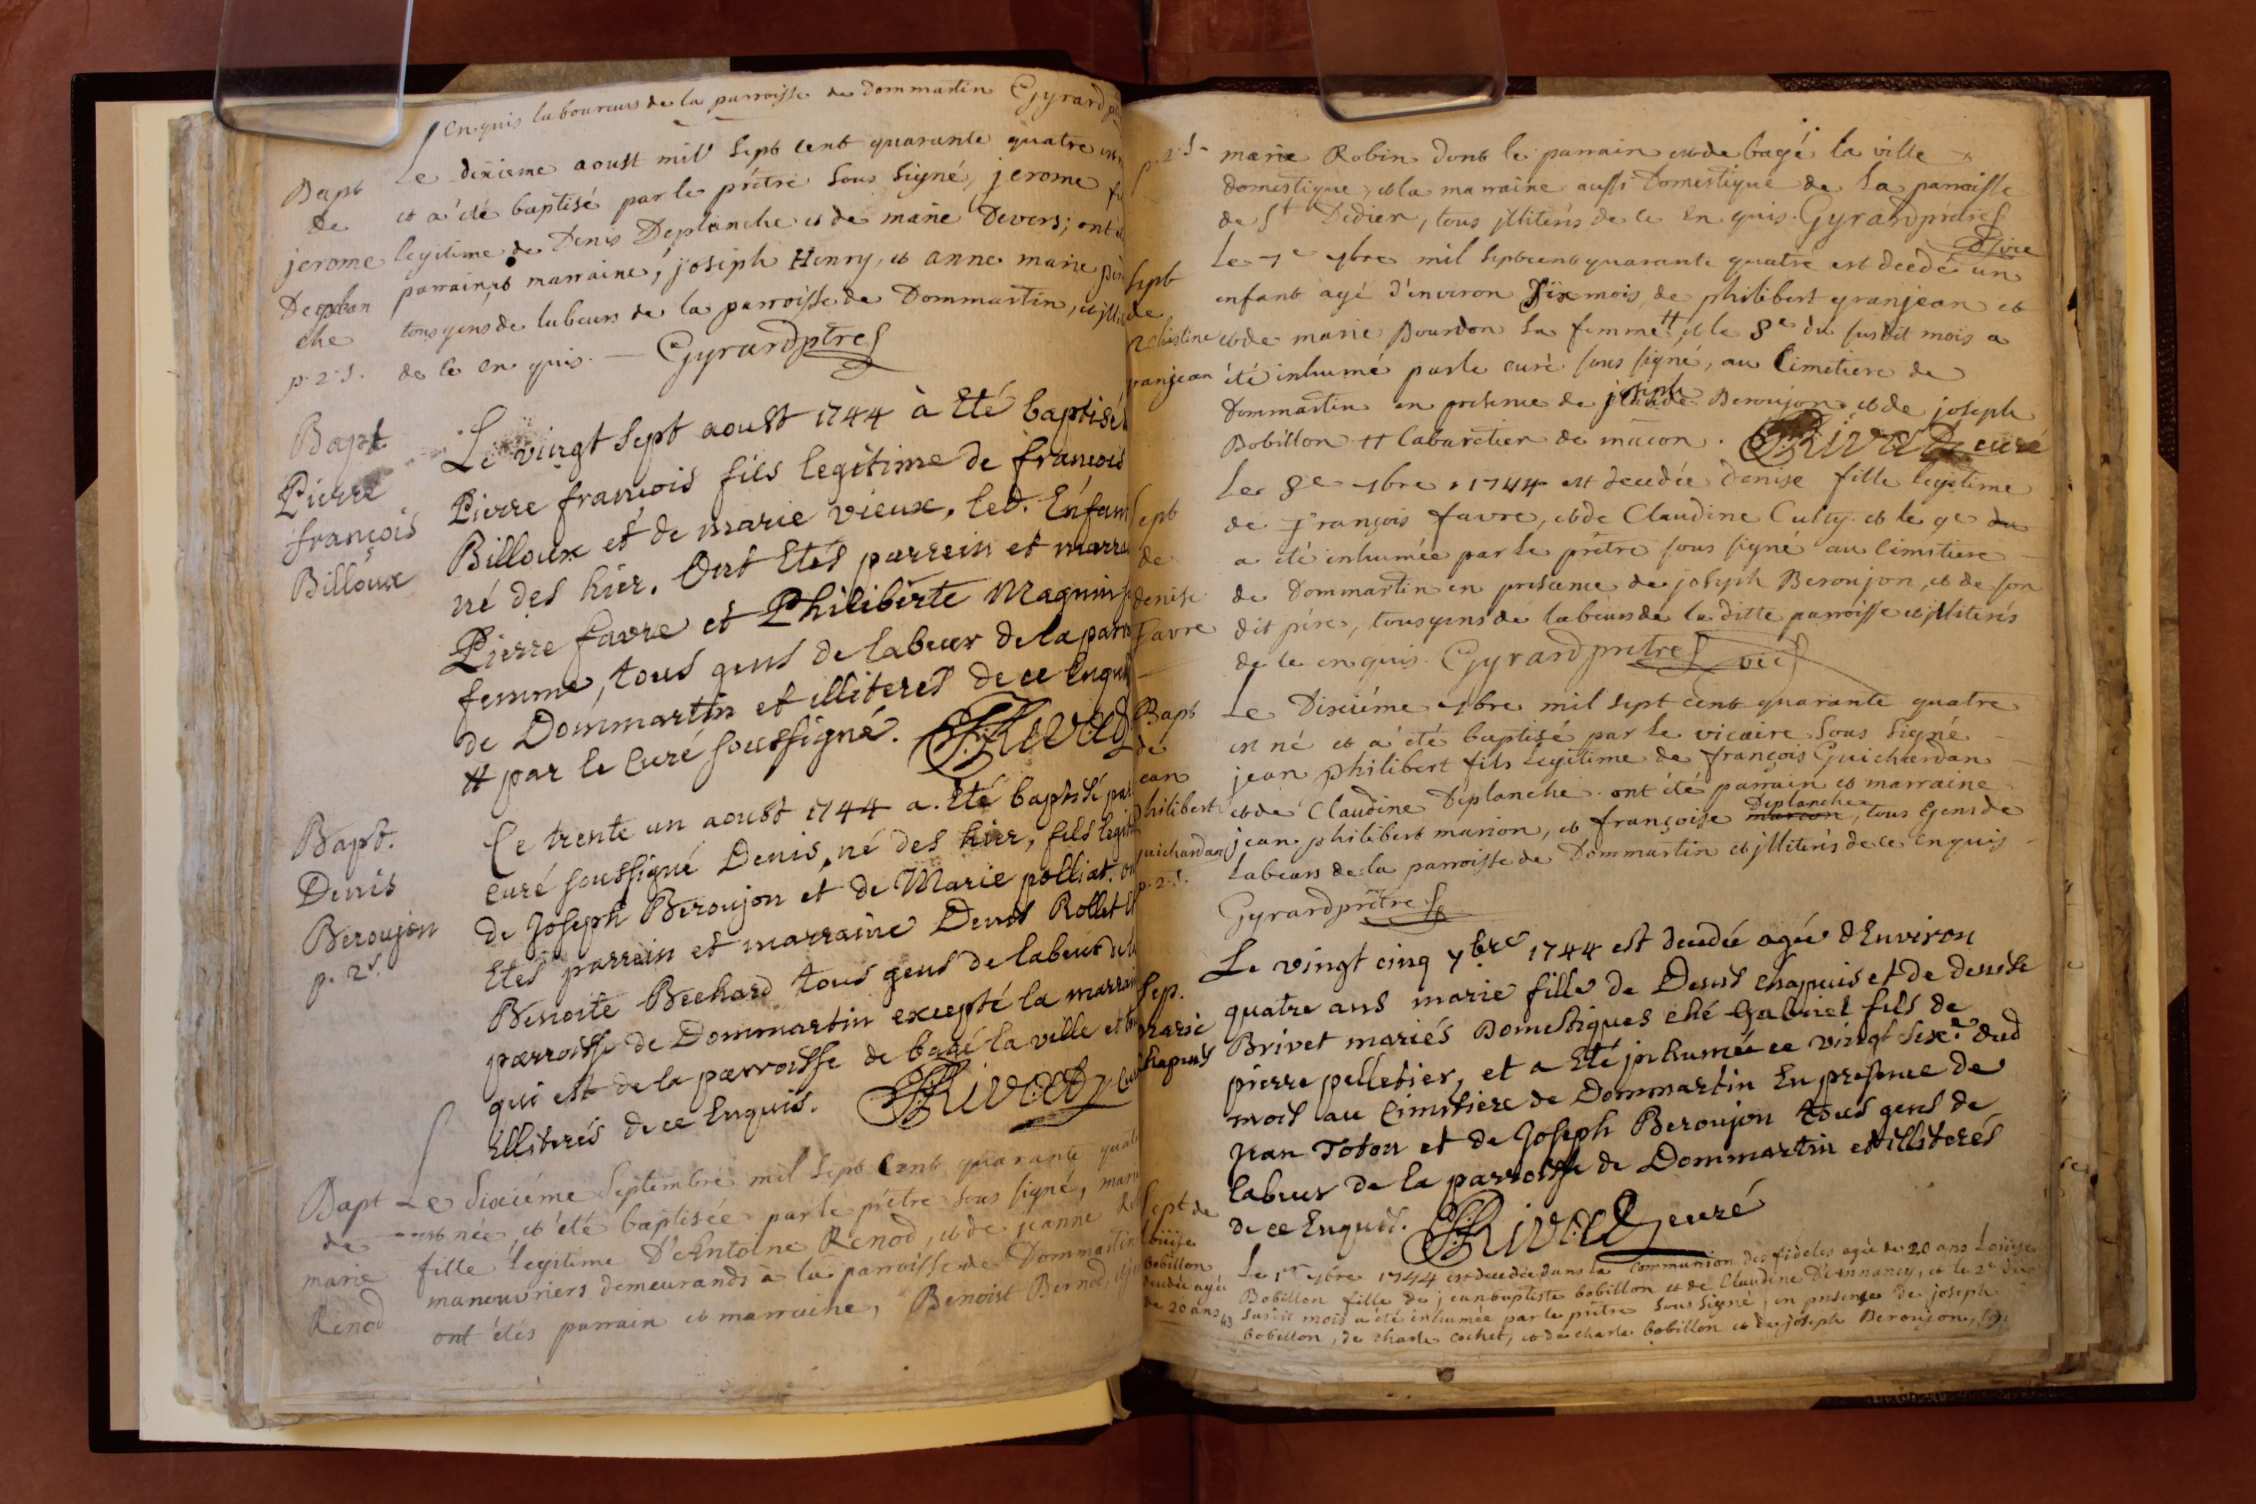 en quis laboureurs de la parroisse de Dommartin Gyrard
Bapt
de
jerome
Deplan
che
p. 2. s.
Le dixieme aoust mil sept cent quarante quatre est
et a été baptisé par le prêtre sous signé, jerome
legitime de Denis Deplanche et de marie Devers; ont
parrain et marraine, joseph Henry, et anne marie
tous gens de labeurs de la parroisse de Dommartin, et
de ce en quis. — Gyrard ptre
Bapt
Pierre
françois
Billoux
Le vingt sept aoust 1744 à Eté baptisé
Pierre françois fils legitime de françois
Billoux et de marie vieux, led. Enfant
né des hier. Ont Etés parrein et marra
Pierre favre et Philiberte Maguin
femme, tous gens de labeur de la parr
de Dommartin et illiteres de ce Enquis
# par le Curé soussigné. Rivat
Bapt.
Denis
Beroujon
p. 2 s.
Le trente un aoust 1744 a Eté baptisé par
curé soussigné Denis, né des hier, fils legit
de Joseph Beroujon et de Marie polliat. on
Etés parrein et marraine Denis Rollet et
Benoite Bechard tous gens de labeur de la
parroisse de Dommartin excepté la marrein
qui est de la parroisse de bagé la ville et
illiterés de ce Enquis. Rivat
Bapt
de
marie
Renod
Le Sixiéme Septembre mil sept Cent quarante quat
est née et été baptisée par le prêtre sous signé, marie
fille legitime D'Antoine Renod, et de jeanne
manouvriers demeurands à la parroisse de Dommartin
ont étés parrain et marraine, Benoist Bernod,
p. 2. s.
marie Robin dont le parrain est de bagé la ville
domestique, et la marraine aussi Domestique de la parroisse
de St Didier, tous jlliterés de ce en quis. Gyrard prêtre
vicre
Sept
de
christine
granjean
Le 7e 7bre mil sept cent quarante quatre est decedé un
enfant agé d'environ six mois, de philibert granjean et
et de marie Bourdon sa femme # et le 8e du susdit mois a
été inhumé par le curé sous signé, au Cimetiere de
joseph
Dommartin en presence de Beroujon et de joseph
Bobillon # Cabaretier de mâcon. Rivat curé
Sept
de
denise
Favre
Le 8e 7bre 1744 est decedée denise fille legitime
de François favre, et de Claudine Culty et le 9e du
a été inhumée par le prêtre sous signé au Cimetiere
de Dommartin en presence de joseph Beroujon, et de son
dit pére, tous gens de labeurs de la ditte parroisse et jlliterés
de ce en quis. Gyrard prêtre vic
Bapt
de
jean
philibert
guichardan
p. 2. s.
Le Dixiéme 7bre mil sept cent quarante quatre
est né et a été baptisé par le vicaire sous signé
jean philibert fils legitime de françois Guichardan
et de Claudine Deplanche. ont été parrain et marraine
Deplanche
jean philibert marion, et françoise marion, tous gens de
Labeurs de la parroisse de Dommartin et jlliterés de ce enquis
Gyrard prêtre
Sep.
marie
Chapuis
Le vingt cinq 7bre 1744 est decedée agée d'Environ
quatre ans marie fille de Denis Chapuis et de denise
Brivet mariés Domestiques ché Gabriel fils de
pierre pelletier, et a Eté inhumée ce vingt sixe dud
mois au Cimetiere de Dommartin En presence de
jean Toton et de Joseph Beroujon tous gens de
labeur de la parroisse de Dommartin et illiterés
de ce Enquis. Rivat curé
Sept de
Louise
bobillon
decedée agée
de 20 ans
Le 1er 7bre 1744 est decedée dans la Communion des fideles agée de 20 ans Louise
Bobillon fille de jean baptiste bobillon et de Claudine Demnancy, et le 2e du
susdit mois a été inhumée par le prêtre sous signé, en presence de joseph
bobillon, de charle cochet, et de charle bobillon et de joseph Beroujon,